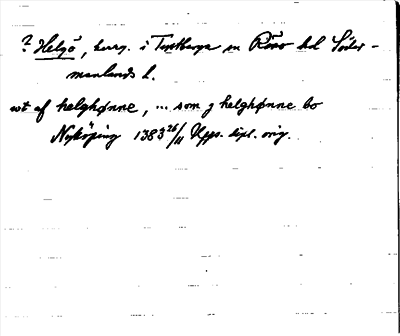 ? Helgö, herrg. i Tystberga sn Rönö hd Söder-
manlands l.
wt af helghønne, ... som j helghønne bo
Nyköping 1383 26/11 Upps. dipl. orig.